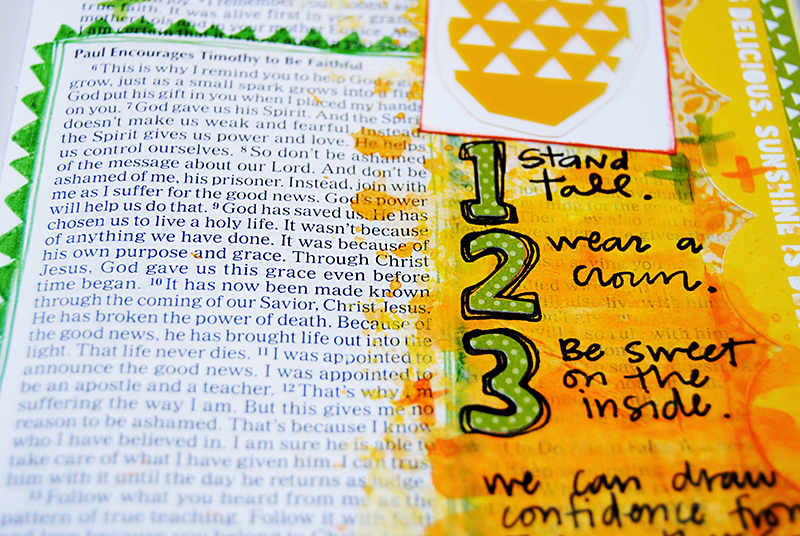 true faith. It was alive first in your
mother Lois and
I am certain that
Paul Encourages Timothy to Be Faithful
6 This is why I remind you to help God's gift
grow, just as a small spark grows into a fire.
God put his gift in you when I placed my hands
on you. 7 God gave us his Spirit. And the Spirit
doesn't make us weak and fearful. Instead,
the Spirit gives us power and love. He helps
us control ourselves. 8 So don't be ashamed
of the message about our Lord. And don't be
ashamed of me, his prisoner. Instead, join with
me as I suffer for the good news. God's power
will help us do that. 9 God has saved us. He has
chosen us to live a holy life. It wasn't because
of anything we have done. It was because of
his own purpose and grace. Through Christ
Jesus, God gave us this grace even before
time began. 10 It has now been made known
through the coming of our Savior, Christ Jesus.
He has broken the power of death. Because of
the good news, he has brought life out into the
light. That life never dies. 11 I was appointed to
announce the good news. I was appointed to
be an apostle and a teacher. 12 That's why I'm
suffering the way I am. But this gives me no
reason to be ashamed. That's because I know
who I have believed in. I am sure he is able to
take care of what I have given him. I can trust
him with it until the day he returns as judge.
13 Follow what you heard from me as the
pattern of true teaching. Follow it with faith
and love because you belong to Christ
1 Stand
tall.
2 wear a
crown.
3 Be sweet
on the
inside.
we can draw
confidence from
DELICIOUS. SUNSHINE IS